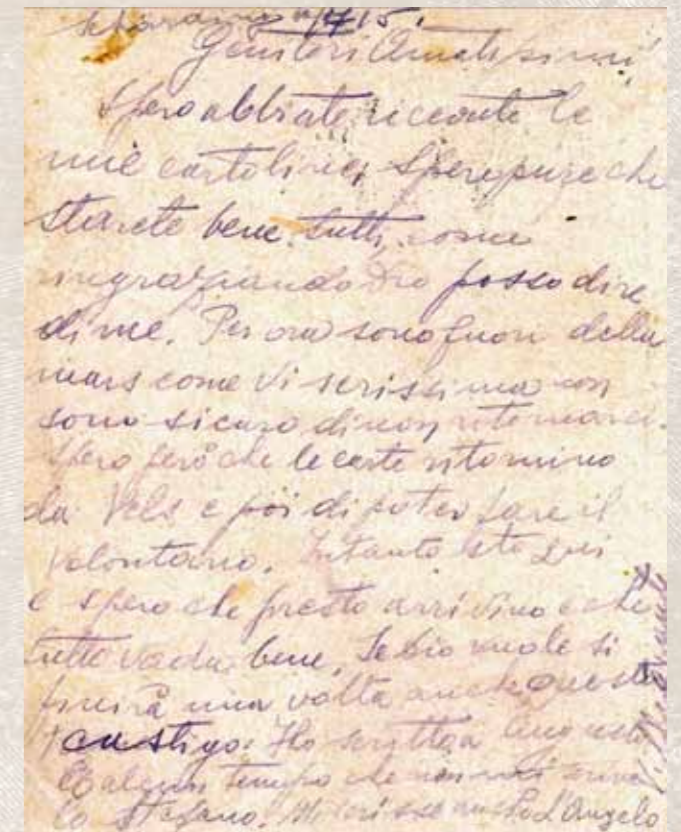 15.
Genitori Amatissimi!
Spero abbiate ricevute le
mie cartoline, spero pure che
starete bene tutti, come
ringraziando Dio posso dire
di me. Per ora sono fuori della
mars come vi scrissi ma non
sono sicuro di non ritornarci.
Spero però che le carte ritornino
da Vels e poi di poter fare il
volontario. Intanto sto qui
e spero che presto arrivino e che
tutto vada bene. Se Dio vuole si
finirà una volta anche questo
castigo. Ho scritto a Augusto
È alcun tempo che non mi scrive
lo Stefano. Mi scrisse anche l'Angelo